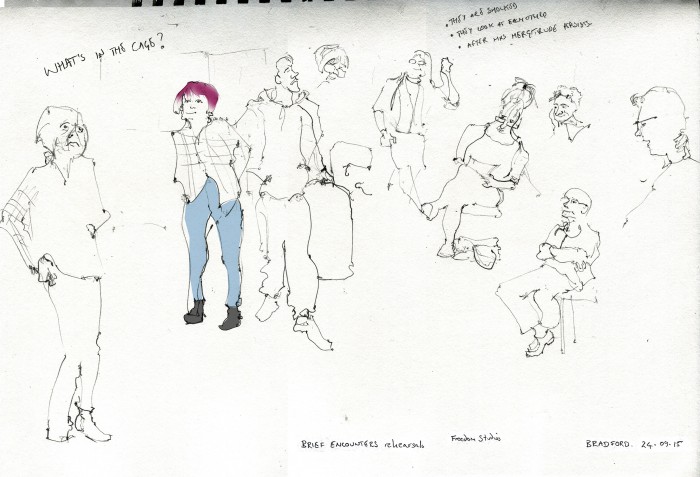 WHAT'S IN THE CAGE?
• THEY ARE SHOCKED
• THEY LOOK AT EACH OTHER
• AFTER MRS MERGATRUDE
BRIEF ENCOUNTERS rehearsals
Freedom Studios
BRADFORD. 24.09.15